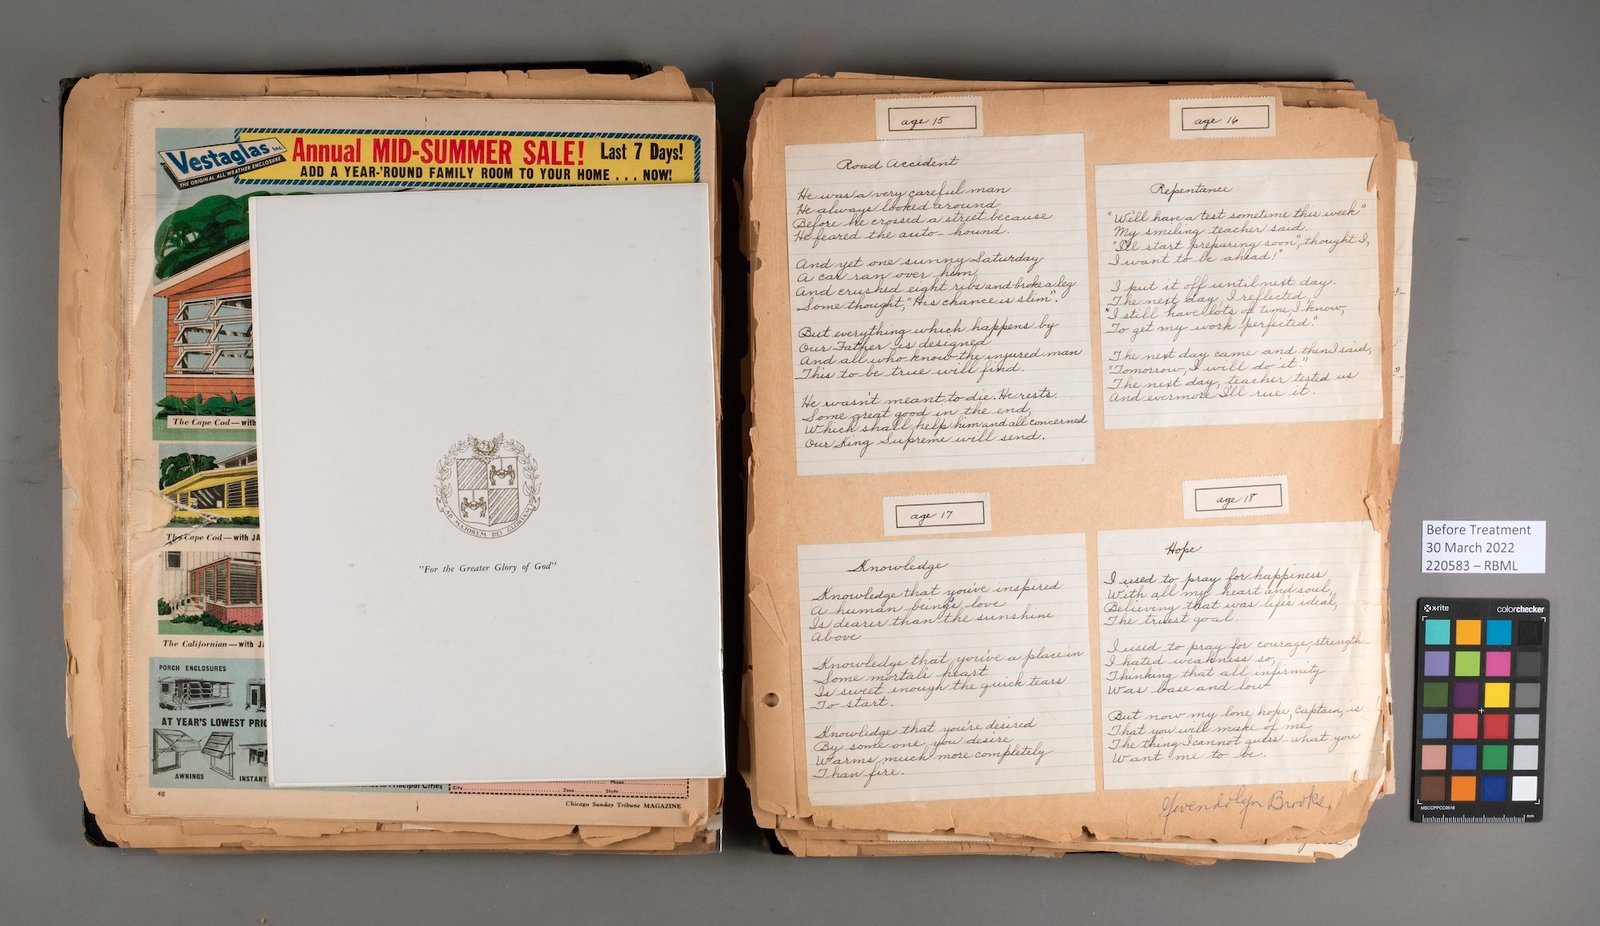 Vestaglas Inc.
THE ORIGINAL ALL WEATHER ENCLOSURE
Annual MID-SUMMER SALE! Last 7 Days!
ADD A YEAR-'ROUND FAMILY ROOM TO YOUR HOME . . . NOW!
The Cape Cod—with
The Cape Cod—with JA
The Californian—with JA
PORCH ENCLOSURES
AT YEAR'S LOWEST PRIC
AWNINGS
INSTANT
Principal Cities
City
Zone
State
Phone
48
Chicago Sunday Tribune MAGAZINE
AD MAJOREM DEI GLORIAM
"For the Greater Glory of God"
age 15
Road Accident
He was a very careful man
He always looked around
Before he crossed a street because
He feared the auto-hound.
And yet one sunny Saturday
A car ran over him,
And crushed eight ribs and broke a leg
Some thought, "His chance is slim".
But everything which happens by
Our Father is designed
And all who know the injured man
This to be true will find.
He wasn't meant to die. He rests.
Some great good in the end,
Which shall help him and all concerned
Our King Supreme will send.
age 16
Repentance
"We'll have a test sometime this week"
My smiling teacher said.
"I'll start preparing soon", thought I,
I want to be ahead!"
I put it off until next day.
The next day I reflected,
"I still have lots of time, I know,
To get my work perfected."
The next day came and then I said,
"Tomorrow, I will do it."
The next day, teacher tested us
And evermore I'll rue it.
age 17
Knowledge
Knowledge that you've inspired
A human being's love
Is dearer than the sunshine
Above
Knowledge that you've a place in
Some mortal's heart
Is sweet enough the quick tears
To start.
Knowledge that you're desired
By some one you desire
Warms much more completely
Than fire.
age 18
Hope
I used to pray for happiness
With all my heart and soul,
Believing that was life's ideal,
The truest goal.
I used to pray for courage, strength—
I hated weakness so,
Thinking that all infirmity
Was base and low
But now my lone hope, Captain, is
That you will make of me
The thing I cannot guess what you
Want me to be
Gwendolyn Brooks.
Before Treatment
30 March 2022
220583 – RBML
x-rite
colorchecker
MSCCPPCC0616
mm